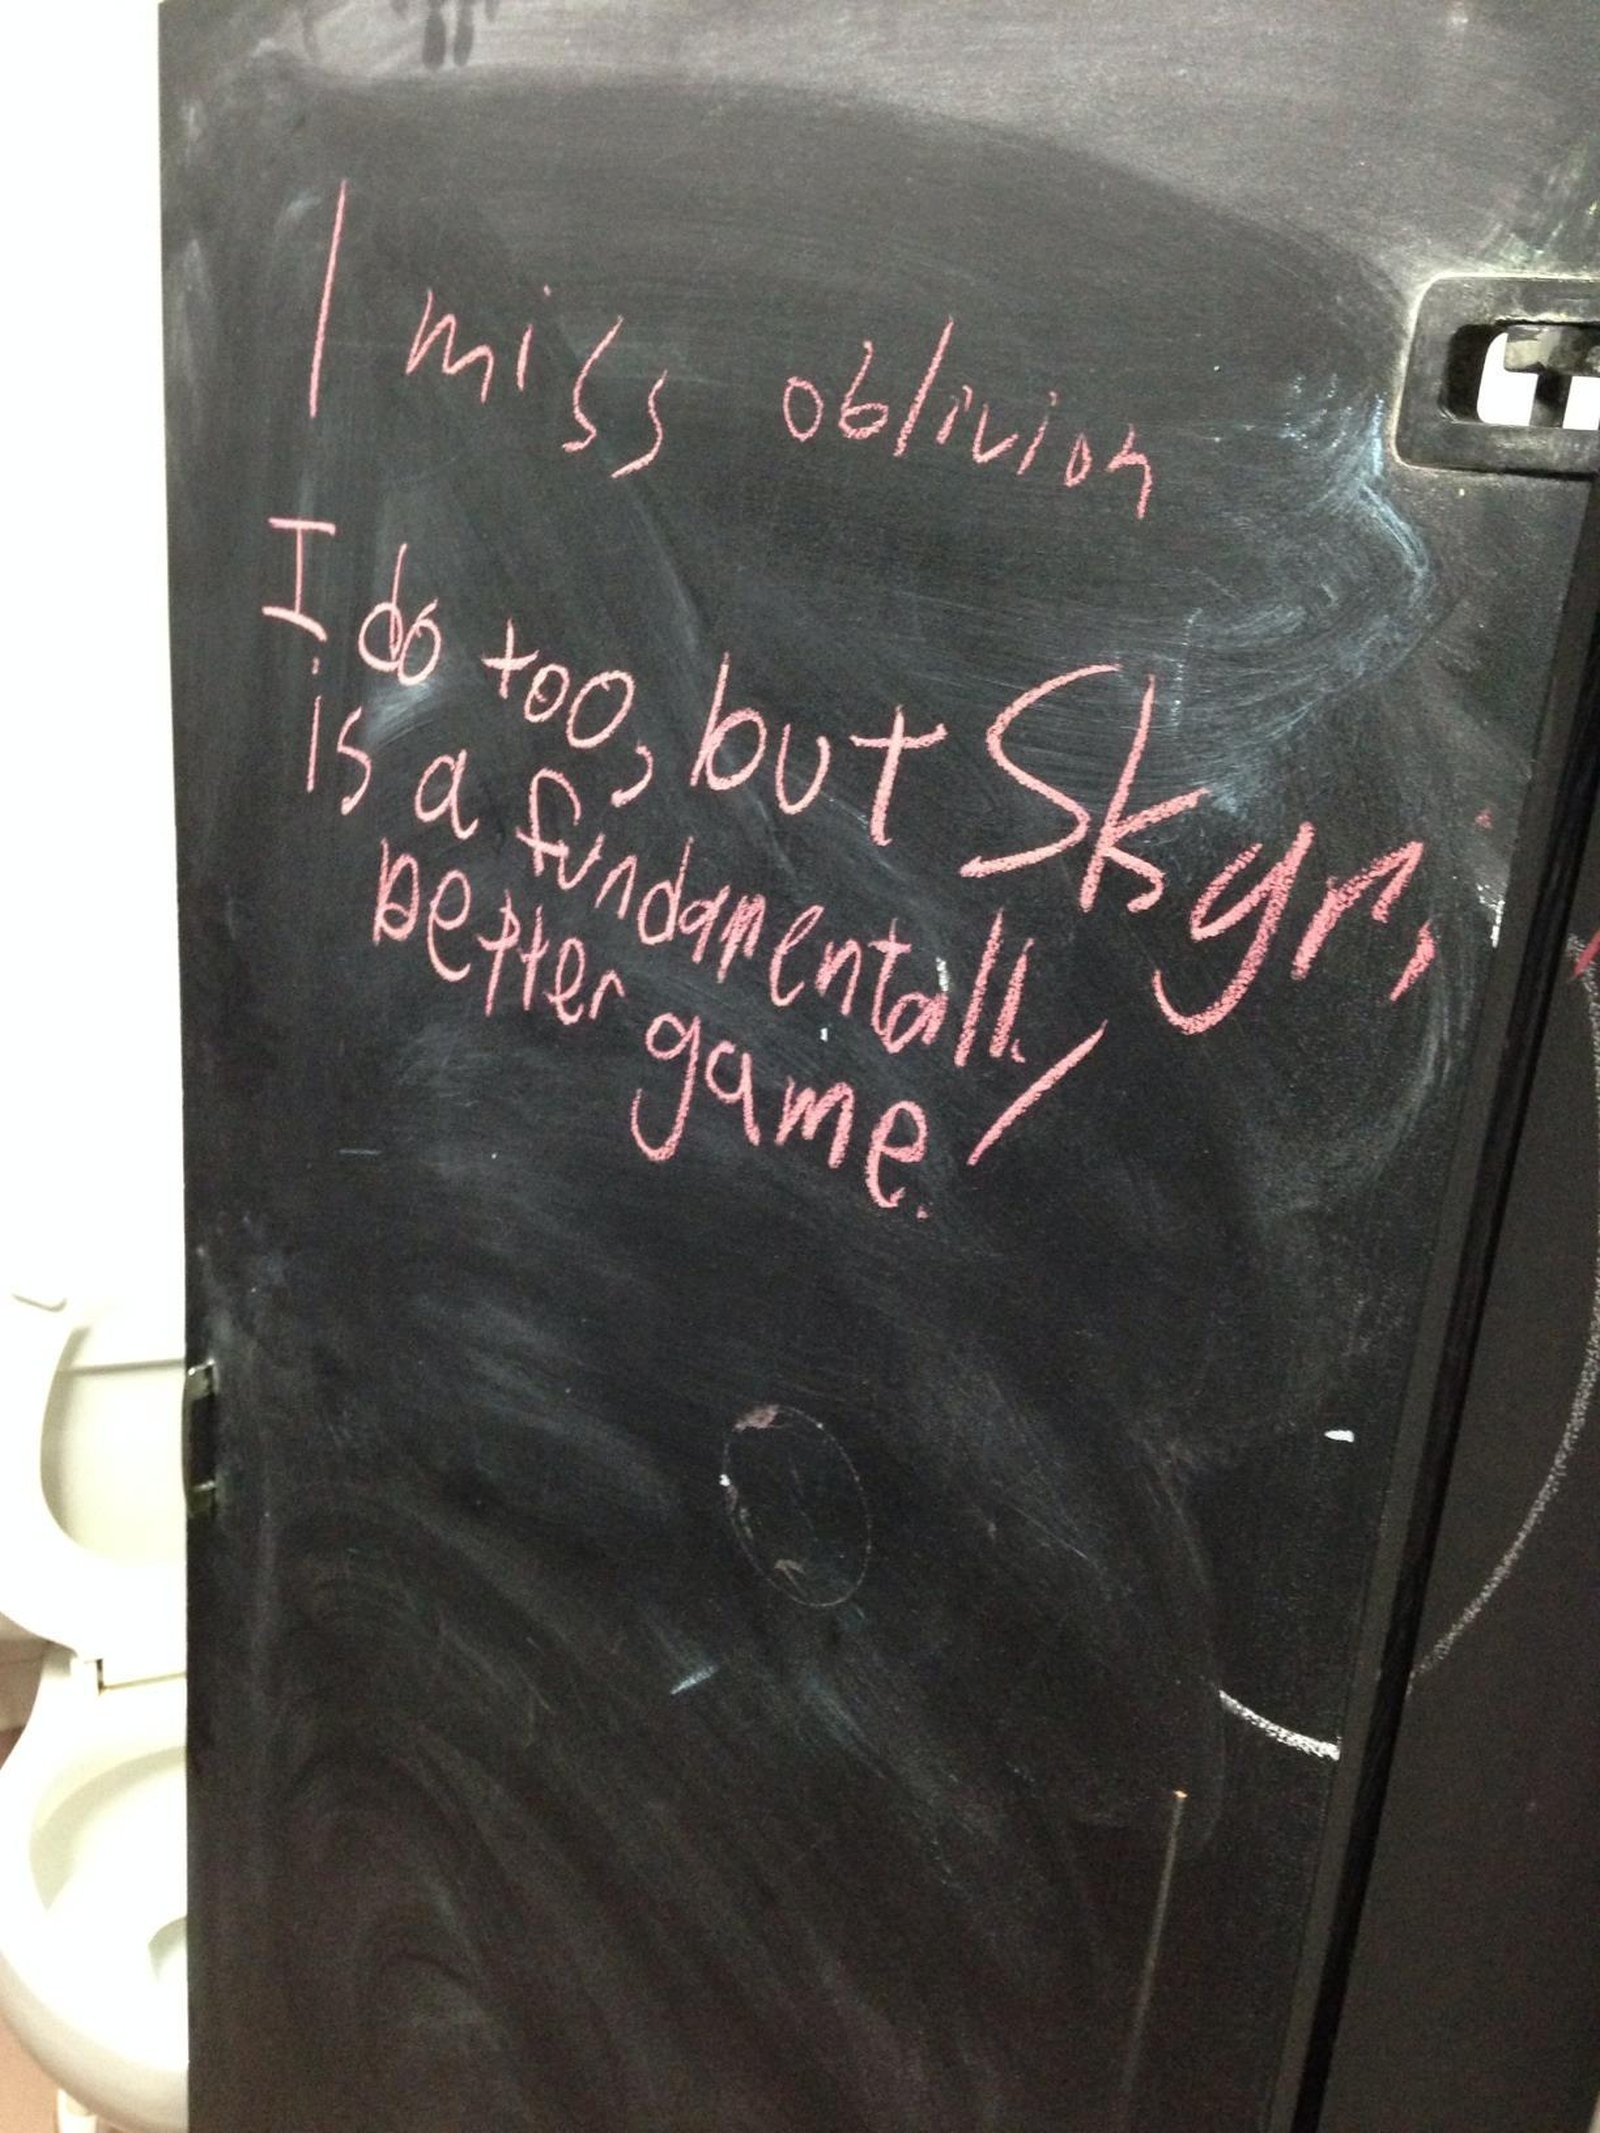 I miss oblivion
I do too, but Skyri
is a fundamentally
better game.